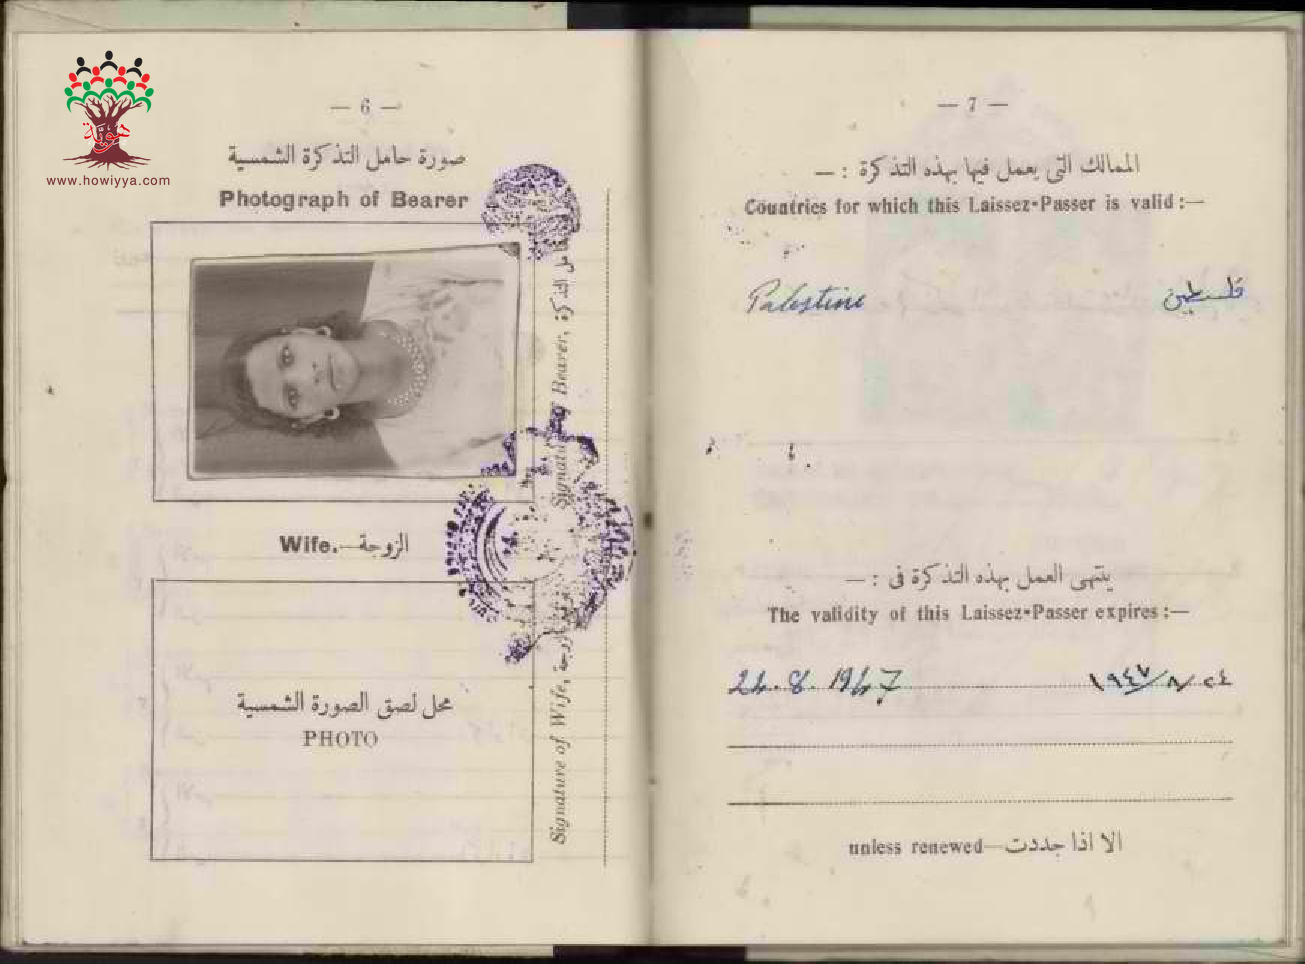 هوية
www.howiyya.com
— 6 —
صورة حامل التذكرة الشمسية
Photograph of Bearer
حامل التذكرة
Signature of Bearer,
Wife.—الزوجة
محل لصق الصورة الشمسية
PHOTO
Signature of Wife, الزوجة
— 7 —
الممالك التي يعمل فيها بهذه التذكرة : —
Countries for which this Laissez-Passer is valid :—
Palestine فلسطين
ينتهى العمل بهذه التذكرة فى : —
The validity of this Laissez-Passer expires :—
24.8.1947 ٢٤/٨/١٩٤٧
unless renewed—الا اذا جددت